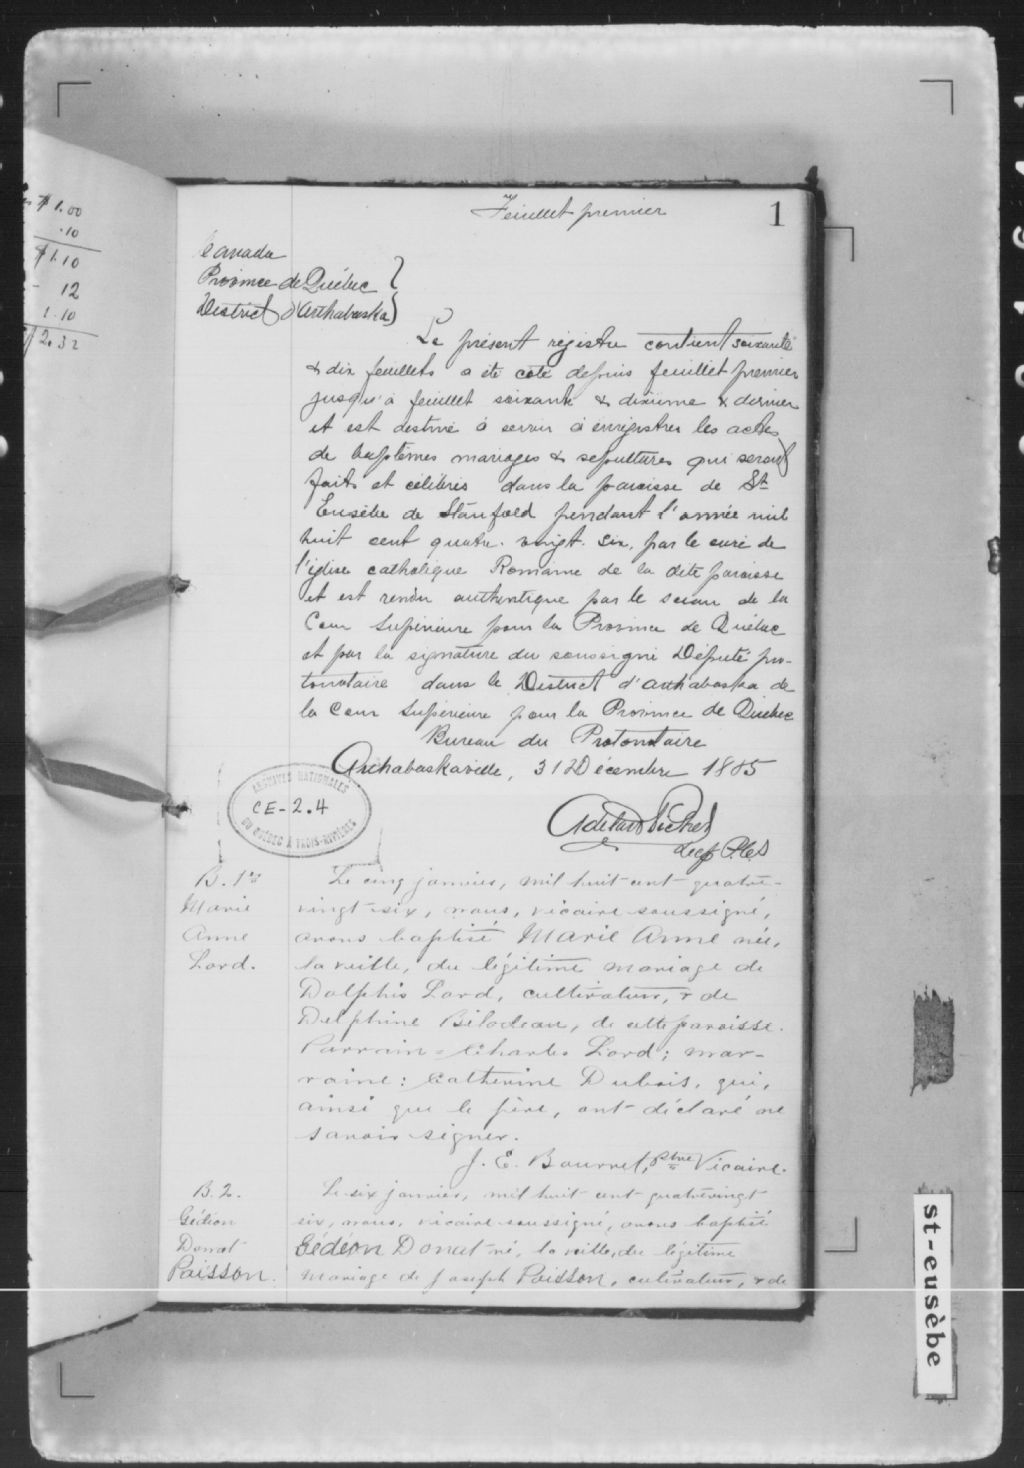 $1.00
.10
$1.10
12
1.10
2.32
Feuillet premier
1
Canada
Province de Québec
District d'Arthabaska
Le présent régistre contient soixante
& dix feuillets a été coté depuis feuillet premier
jusqu'à feuillet soixante & dixième & dernier
et est destiné à servir à enrégistrer les actes
de baptêmes mariages & sépultures qui seront
faits et célébrés dans la paroisse de St
Eusèbe de Stanfold pendant l'année mil
huit cent quatre-vingt-six, par le curé de
l'église catholique Romaine de la dite paroisse
et est rendu authentique par le sceau de la
Cour Supérieure pour la Province de Québec
et par la signature du soussigné Député pro-
tonotaire dans le District d'Arthabaska de
la Cour Supérieure pour la Province de Québec
Bureau du Protonotaire
Arthabaskaville, 31 Décembre 1885
Dep P.C.S
ARCHIVES NATIONALES
CE-2.4
DU QUÉBEC À TROIS-RIVIÈRES
B. 1er
Marie
Anne
Lord.
Le cinq janvier, mil huit-cent-quatre-
vingt-six, nous, vicaire soussigné,
avons baptisé Marie Anne née,
la veille, du légitime mariage de
Dolphis Lord, cultivateur, & de
Delphine Bilodeau, de cette paroisse.
Parrain = Charles Lord; mar-
raine: Catherine Dubois, qui,
ainsi que le père, ont déclaré ne
savoir signer.
J. E. Bourret, Ptre Vicaire.
B. 2.
Gédéon
Donat
Poisson.
Le six janvier, mil huit cent quatrevingt
six, nous, vicaire soussigné, avons baptisé
Gédéon Donat né, la veille, du légitime
mariage de Joseph Poisson, cultivateur, & de
st-eusèbe